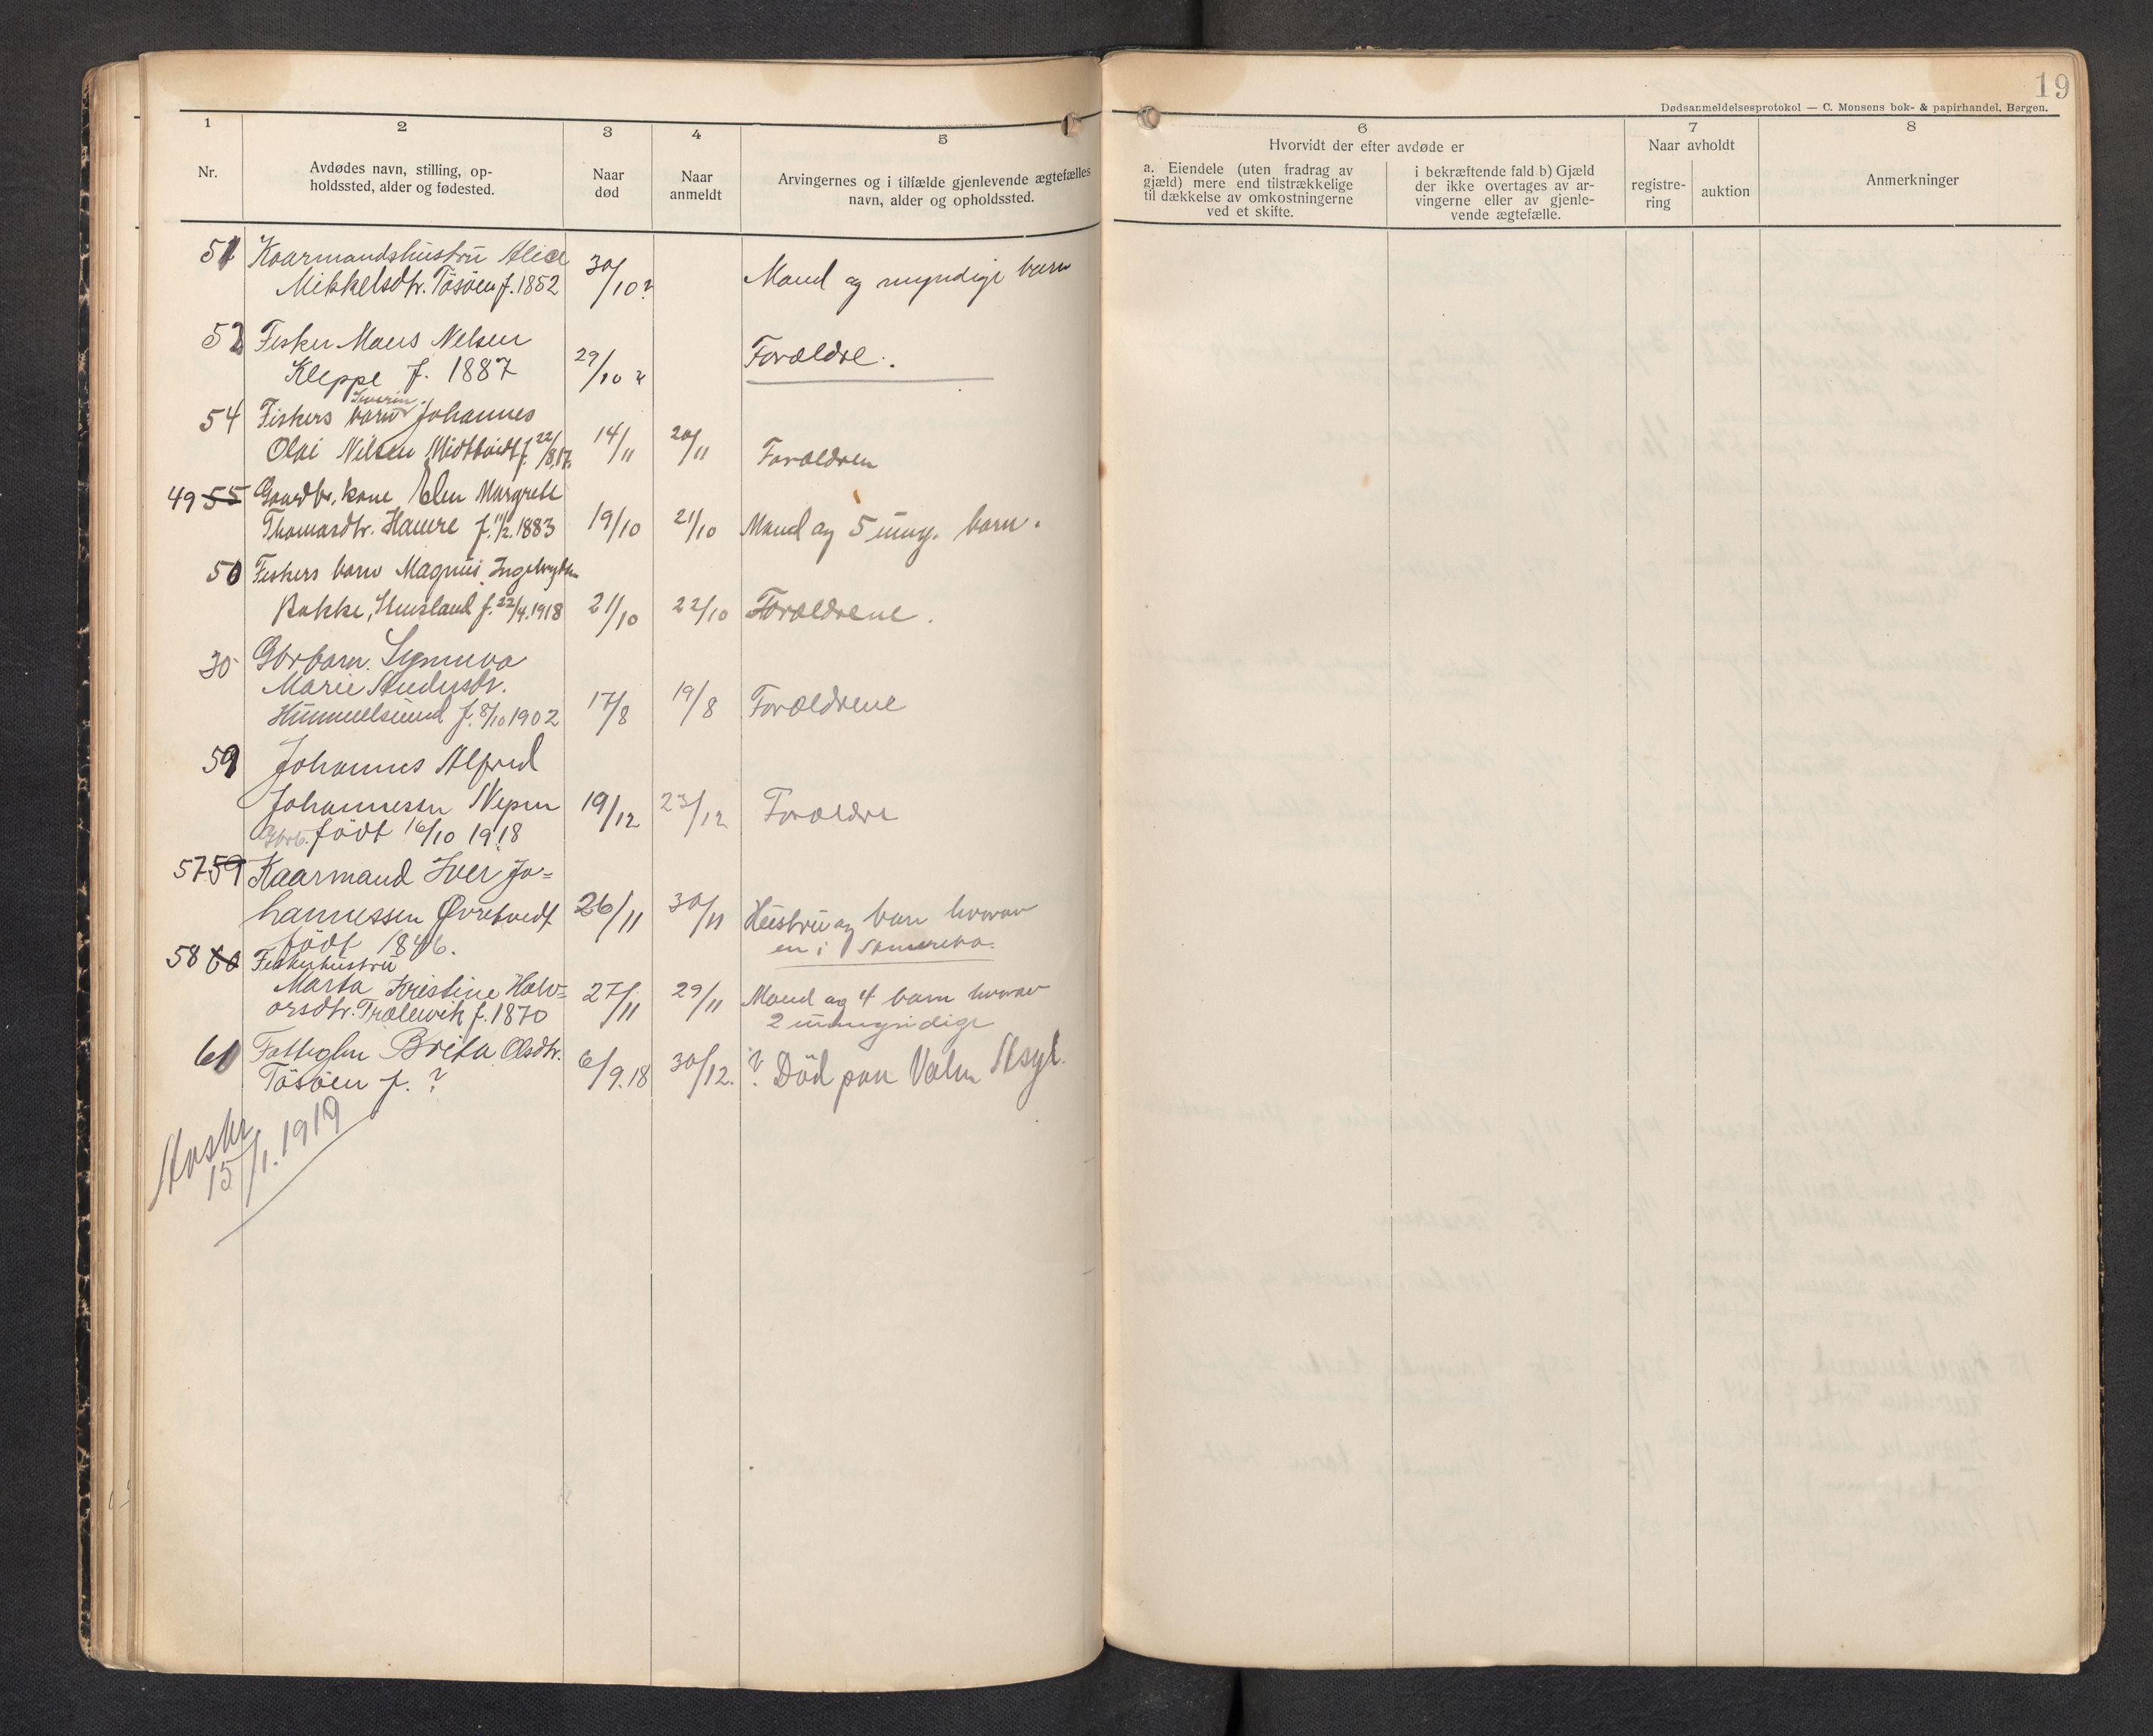 19
Dødsanmeldelsesprotokol — C. Monsens bok- & papirhandel, Bergen.
1
2
3
4
5
6
7
8
Nr.
Avdødes navn, stilling, op-
holdssted, alder og fødested.
Naar
død
Naar
anmeldt
Arvingernes og i tilfælde gjenlevende ægtefælles
navn, alder og opholdssted.
Hvorvidt der efter avdøde er
a. Eiendele (uten fradrag av
gjæld) mere end tilstrækkelige
til dækkelse av omkostningerne
ved et skifte.
i bekræftende fald b) Gjæld
der ikke overtages av ar-
vingerne eller av gjenle-
vende ægtefælle.
Naar avholdt
registre-
ring
auktion
Anmerkninger
51 Kaarmandshustru
Mikkelsdtr. Tösöen f. 1852 30/10 ? Mand og myndige barn
52 Fisker Mons Nilsen
Kleppe f. 1887 29/10 Forældre.
Severin
54 Fiskers barn Johannes
Olai Nilsen f. 22/8.17. 14/11 20/11 Forældren
49 55 Gaardbr. kone Elen Margrete
Thomasdtr. Haure f. 11/2. 1883 19/10 21/10 Mand og 5 umy. barn.
50 Fiskers barn Magnus
Bakke, f. 22/4.1918 21/10 22/10 Forældrene.
30 Gbr barn. Synneva
Marie
Hummelsund f. 8/10 1902 17/8 19/8 Forældrene
59 Johannes Alfred
Johannessen 19/12 23/12 Forældre
Gbrb. född 16/10 1918
57 59 Kaarmand Iver Jo=
hannessen Øvretvedt 26/11 30/11 Hustru og barn hvorav
född 1846. en i Amerika.
58 60 Fiskerhustru
Marta Kristine Halv=
orsdtr. Trælevik f. 1870 27/11 29/11 Mand og 4 barn hvorav
2 umyndige
61 Fattiglem Brita Olsdtr.
Tösöen f. ? 6/9.18 30/12. ? Död paa Valen Asyl.
Avskr
15/1. 1919